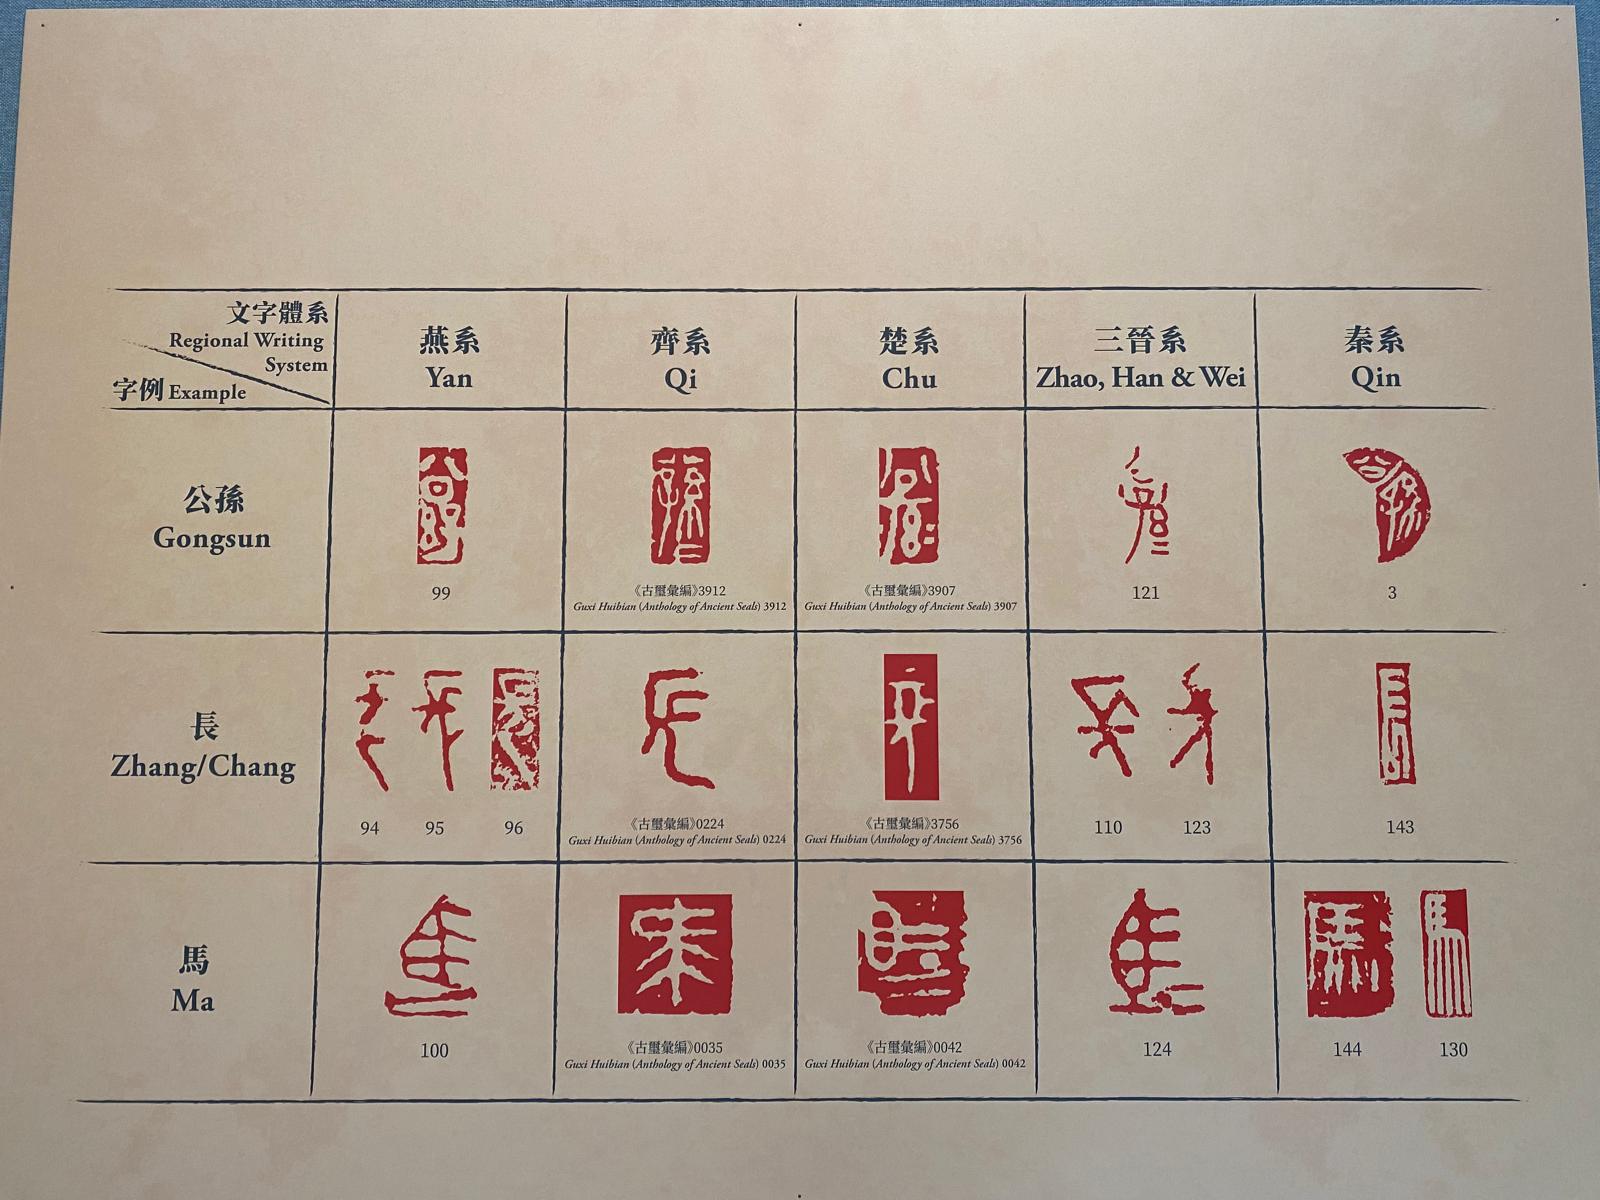 文字體系
Regional Writing
System
字例 Example
燕系
Yan
齊系
Qi
楚系
Chu
三晉系
Zhao, Han & Wei
秦系
Qin
公孫
Gongsun
99
《古璽彙編》3912
Guxi Huibian (Anthology of Ancient Seals) 3912
《古璽彙編》3907
Guxi Huibian (Anthology of Ancient Seals) 3907
121
3
長
Zhang/Chang
94
95
96
《古璽彙編》0224
Guxi Huibian (Anthology of Ancient Seals) 0224
《古璽彙編》3756
Guxi Huibian (Anthology of Ancient Seals) 3756
110
123
143
馬
Ma
100
《古璽彙編》0035
Guxi Huibian (Anthology of Ancient Seals) 0035
《古璽彙編》0042
Guxi Huibian (Anthology of Ancient Seals) 0042
124
144
130